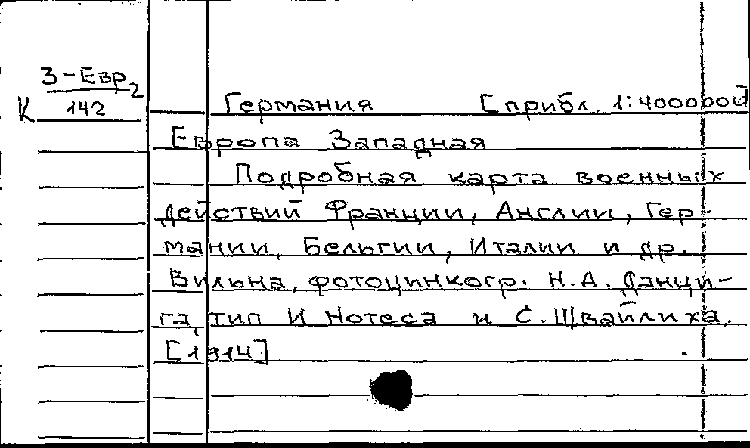 З-Евр2
К 142
Германия [прибл. 1:4000000]
Европа Западная
Подробная карта военных
действий Франции, Англии, Гер-
мании, Бельгии, Италии и др.
Вильна, фотоцинкогр. Н.А. Данци-
га, тип И Нотеса и С. Швайлиха.
[1914]